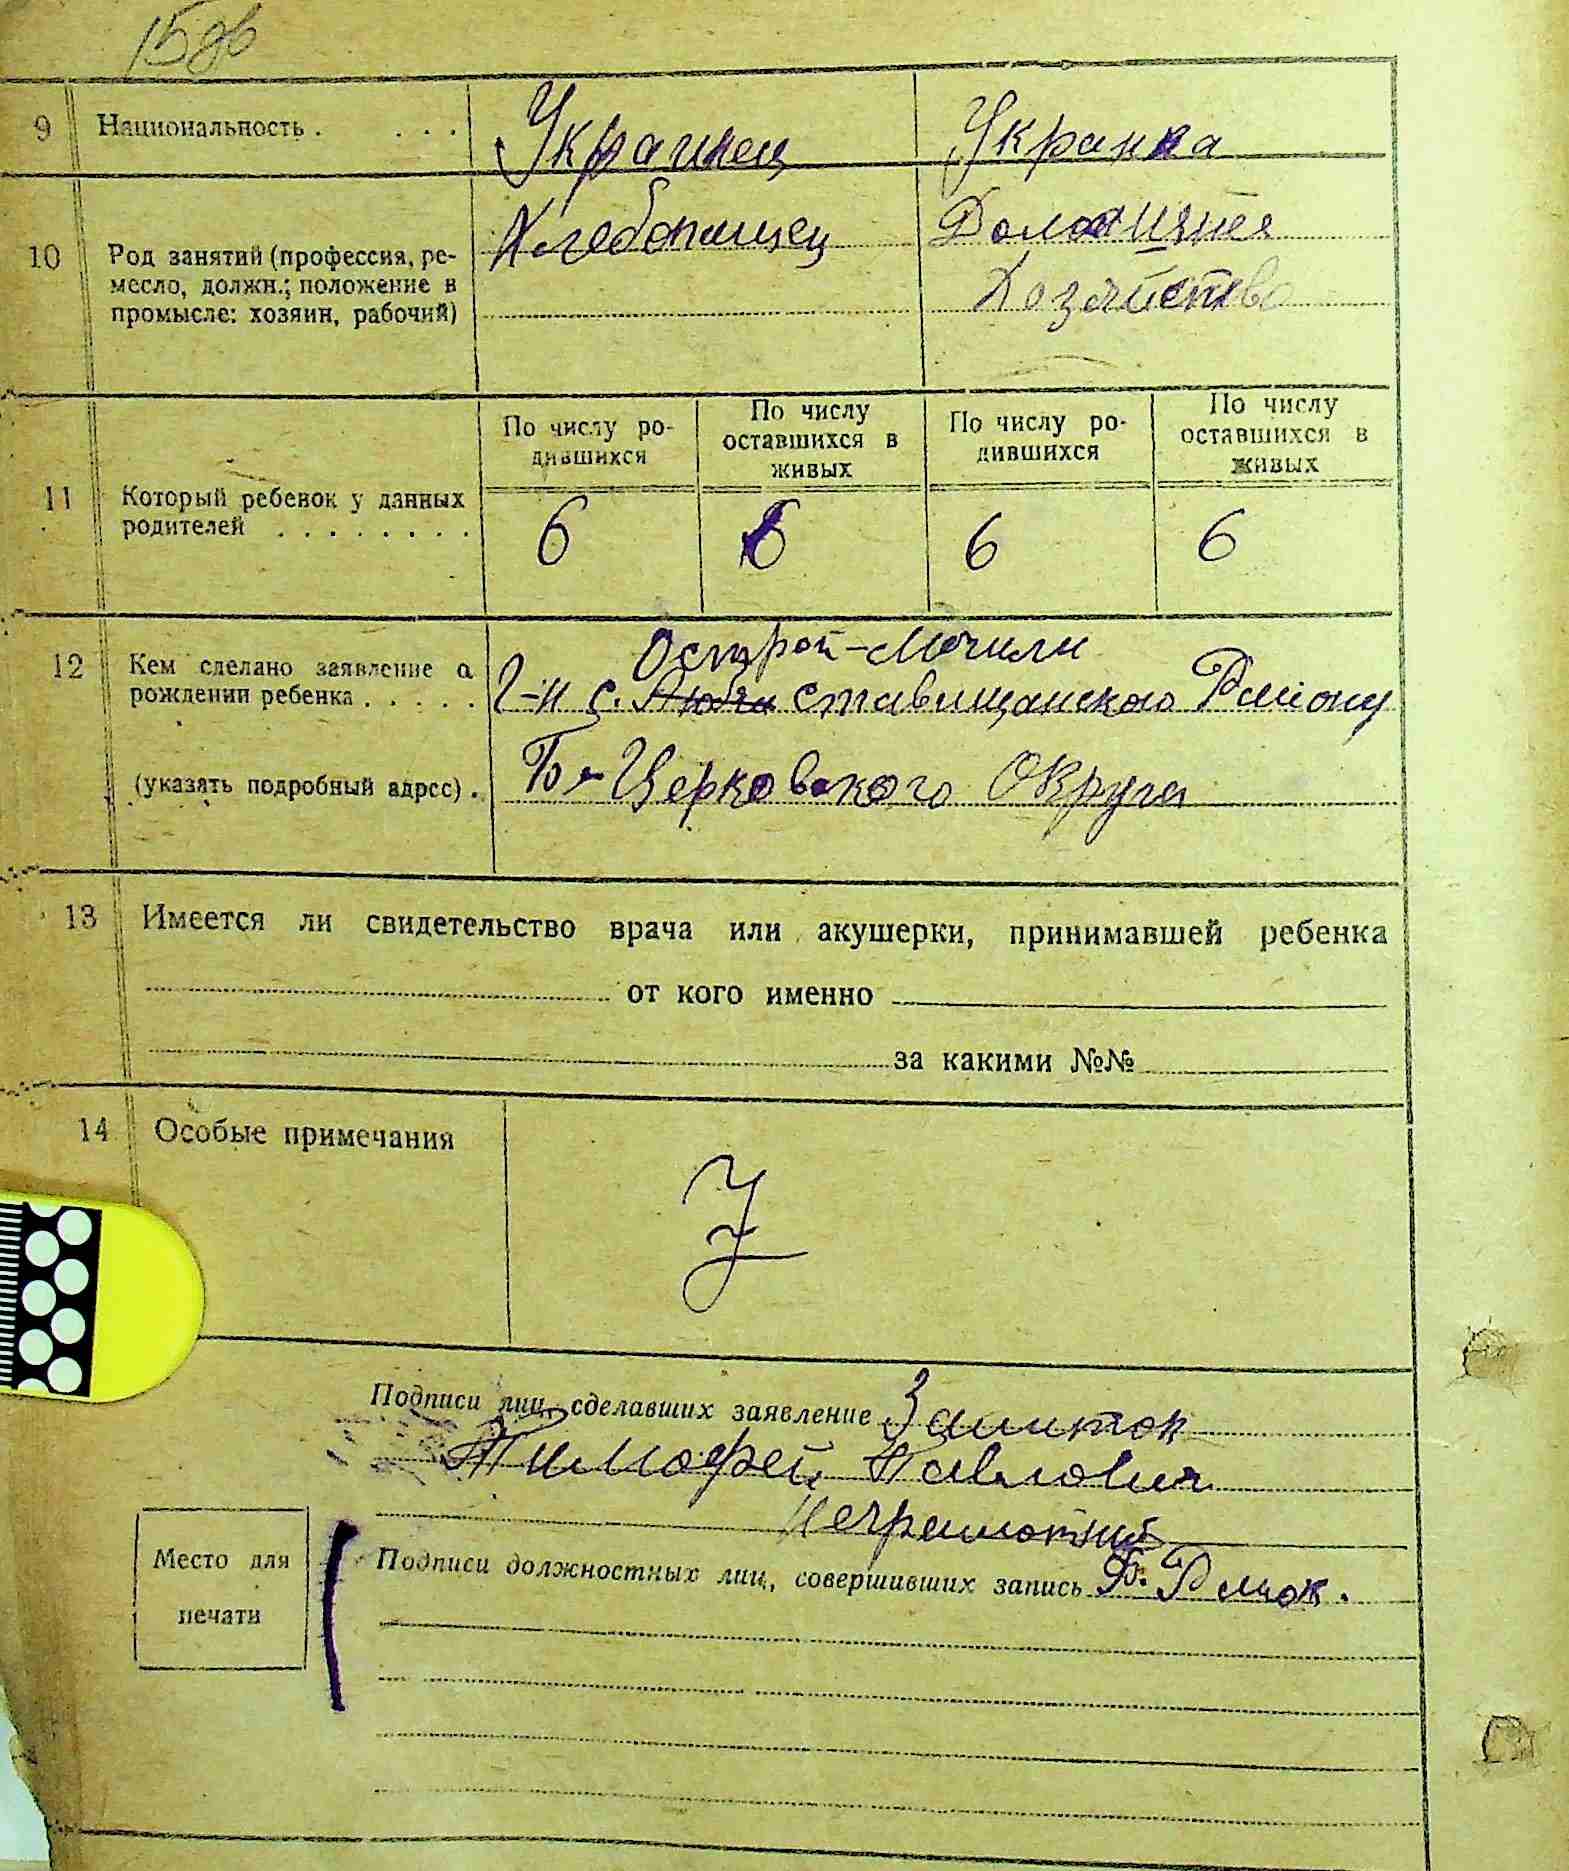 15 об
9 Национальность . . . . Украинец Укранка
10 Род занятий (профессия, ре-
месло, должн.; положение в
промысле: хозяин, рабочий)
Хлебопашец Домашнея
Хозяйство
11 Который ребенок у данных
родителей . . . . . . . .
По числу ро-
дившихся
По числу
оставшихся в
живых
По числу ро-
дившихся
По числу
оставшихся в
живых
6 6 6 6
12 Кем сделано заявление о
рождении ребенка . . . . .
(указать подробный адрес) .
Острой-Могили
Г-н с. ставищанского Району
Б-Церковского Округа
13 Имеется ли свидетельство врача или акушерки, принимавшей ребенка
от кого именно
за какими №№
14 Особые примечания
Подписи лиц, сделавших заявление
Тимофей Павлович
Неграмотний
Место для
печати
Подписи должностных лиц, совершивших запись